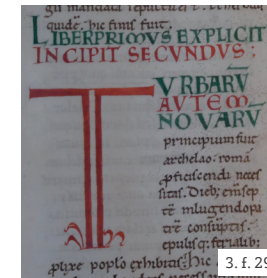 quidē. hic finis fuit.
LIBER PRIMVS EXPLICIT
INCIPIT SECVNDVS;
TVRBARṼ
AVTEM
NOVARṼ
principium fuit
archelao. romā
ꝓficiscendi neces
sitas. Dieb; enī sep
tē in lugendo pa
tre consūptis.
epulisq; feralib;
populo exhibitis. Hic
3. f. 29